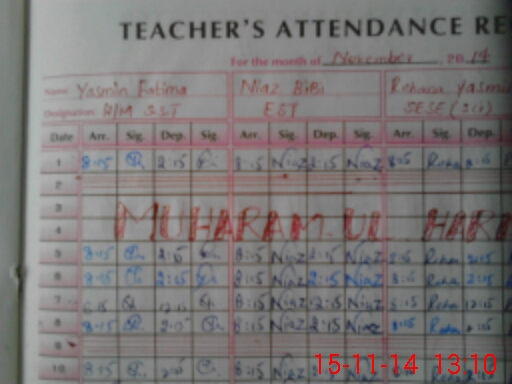 TEACHER'S ATTENDANCE RE
For the month of November 2014
Name: Yasmin Fatima Niaz BiBi Rehana Yasmi
Designation: H/M SST EST SESE (Sci)
Date Arr. Sig. Dep. Sig. Arr. Sig. Dep. Sig. Arr. Sig. Dep.
1 8:15 2:15 8:15 Niaz 2:15 Niaz 8:15 Reha 2:15
2
3
4 MUHARAM-UL HARA
5 8:15 2:15 8:15 Niaz 2:15 Niaz 8:15 Reha 2:15
6 8:15 2:15 8:15 Niaz 2:15 Niaz 8:15 Reha 2:15
7 8:15 12:15 8:15 Niaz 12:15 Niaz 8:15 Reha 12:15
8 8:15 2:15 8:15 Niaz 2:15 Niaz 8:15 Reha 2:15
9
10 8:15 8:15 Niaz
15-11-14 13:10